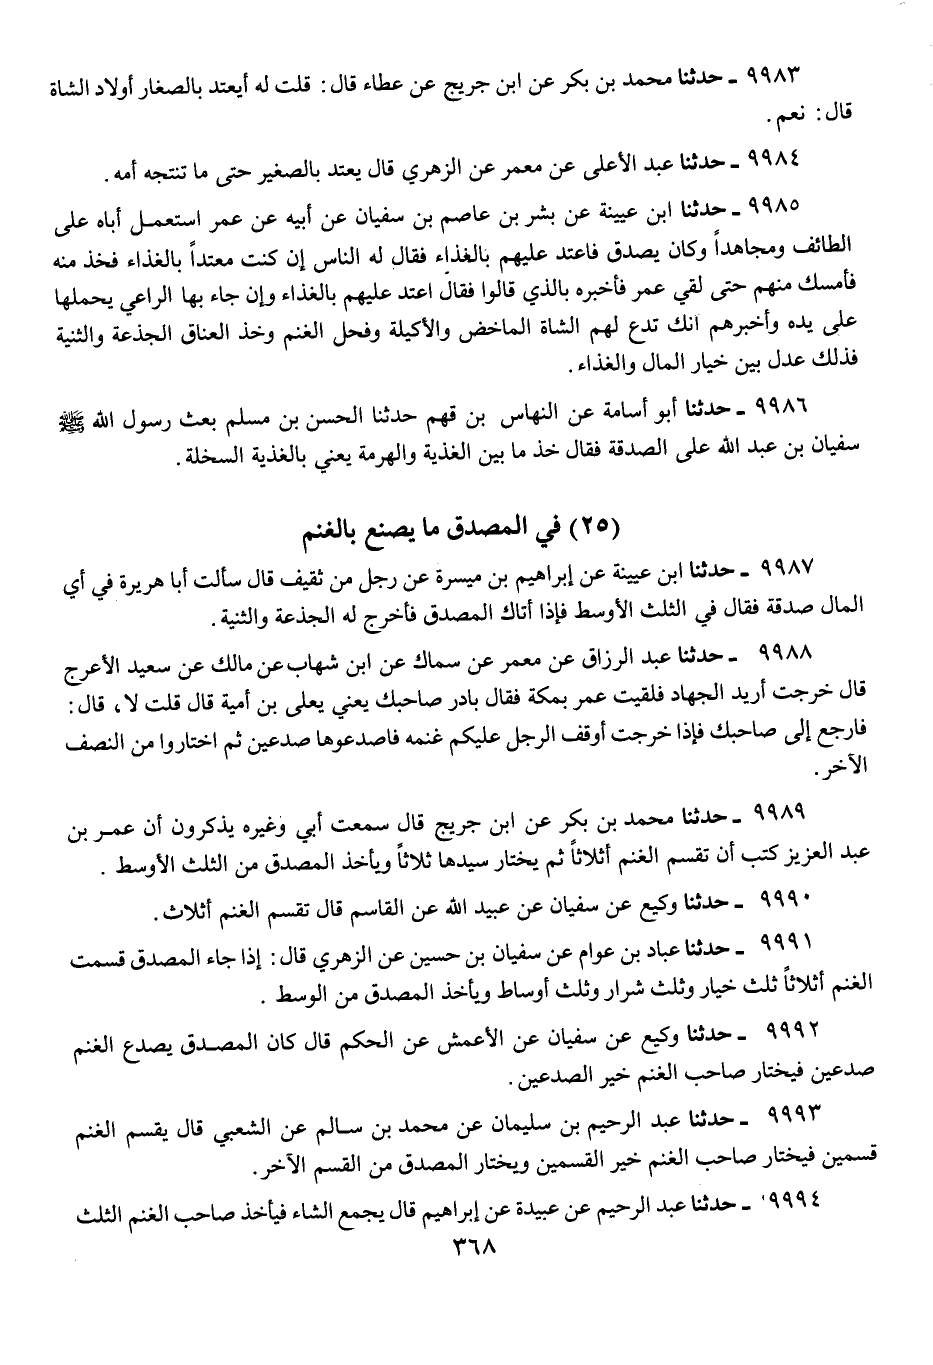 ٩٩٨٣ ـ حدثنا محمد بن بكر عن ابن جريج عن عطاء قال: قلت له أيعتد بالصغار أولاد الشاة
قال: نعم.
٩٩٨٤ ـ حدثنا عبد الأعلى عن معمر عن الزهري قال يعتد بالصغير حتى ما تنتجه أمه.
٩٩٨٥ ـ حدثنا ابن عيينة عن بشر بن عاصم بن سفيان عن أبيه عن عمر استعمل أباه على
الطائف ومجاهداً وكان يصدق فاعتد عليهم بالغذاء فقال له الناس إن كنت معتداً بالغذاء فخذ منه
فأمسك منهم حتى لقي عمر فأخبره بالذي قالوا فقال اعتد عليهم بالغذاء وإن جاء بها الراعي يحملها
على يده وأخبرهم انك تدع لهم الشاة الماخض والأكيلة وفحل الغنم وخذ العناق الجذعة والثنية
فذلك عدل بين خيار المال والغذاء.
٩٩٨٦ ـ حدثنا أبو أسامة عن النهاس بن قهم حدثنا الحسن بن مسلم بعث رسول الله ﷺ
سفيان بن عبد الله على الصدقة فقال خذ ما بين الغذية والهرمة يعني بالغذية السخلة.
(٢٥) في المصدق ما يصنع بالغنم
٩٩٨٧ ـ حدثنا ابن عيينة عن إبراهيم بن ميسرة عن رجل من ثقيف قال سألت أبا هريرة في أي
المال صدقة فقال في الثلث الأوسط فإذا أتاك المصدق فأخرج له الجذعة والثنية.
٩٩٨٨ ـ حدثنا عبد الرزاق عن معمر عن سماك عن ابن شهاب عن مالك عن سعيد الأعرج
قال خرجت أريد الجهاد فلقيت عمر بمكة فقال بادر صاحبك يعني يعلى بن أمية قال قلت لا، قال:
فارجع إلى صاحبك فإذا خرجت أوقف الرجل عليكم غنمه فاصدعوها صدعين ثم اختاروا من النصف
الآخر.
٩٩٨٩ ـ حدثنا محمد بن بكر عن ابن جريج قال سمعت أبي وغيره يذكرون أن عمر بن
عبد العزيز كتب أن تقسم الغنم أثلاثاً ثم يختار سيدها ثلاثاً ويأخذ المصدق من الثلث الأوسط.
٩٩٩٠ ـ حدثنا وكيع عن سفيان عن عبيد الله عن القاسم قال تقسم الغنم أثلاث.
٩٩٩١ ـ حدثنا عباد بن عوام عن سفيان بن حسين عن الزهري قال: إذا جاء المصدق قسمت
الغنم أثلاثاً ثلث خيار وثلث شرار وثلث أوساط ويأخذ المصدق من الوسط.
٩٩٩٢ ـ حدثنا وكيع عن سفيان عن الأعمش عن الحكم قال كان المصدق يصدع الغنم
صدعين فيختار صاحب الغنم خير الصدعين.
٩٩٩٣ ـ حدثنا عبد الرحيم بن سليمان عن محمد بن سالم عن الشعبي قال يقسم الغنم
قسمين فيختار صاحب الغنم خير القسمين ويختار المصدق من القسم الآخر.
٩٩٩٤ ـ حدثنا عبد الرحيم عن عبيدة عن إبراهيم قال يجمع الشاء فيأخذ صاحب الغنم الثلث
٣٦٨